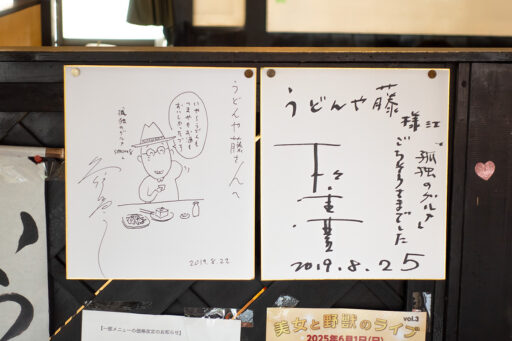 うどんや藤さんへ
いや〜うどんも
つまみもお酒も
おいしかったァ〜
孤独のグルメ
2019.8.22
うどんや藤様江
孤独のグルメ
ごちそうさまでした
2019.8.25
【一部メニューの価格改定のお知らせ】
美女と野獣のライブ
vol.3
2025年6月1日(日)